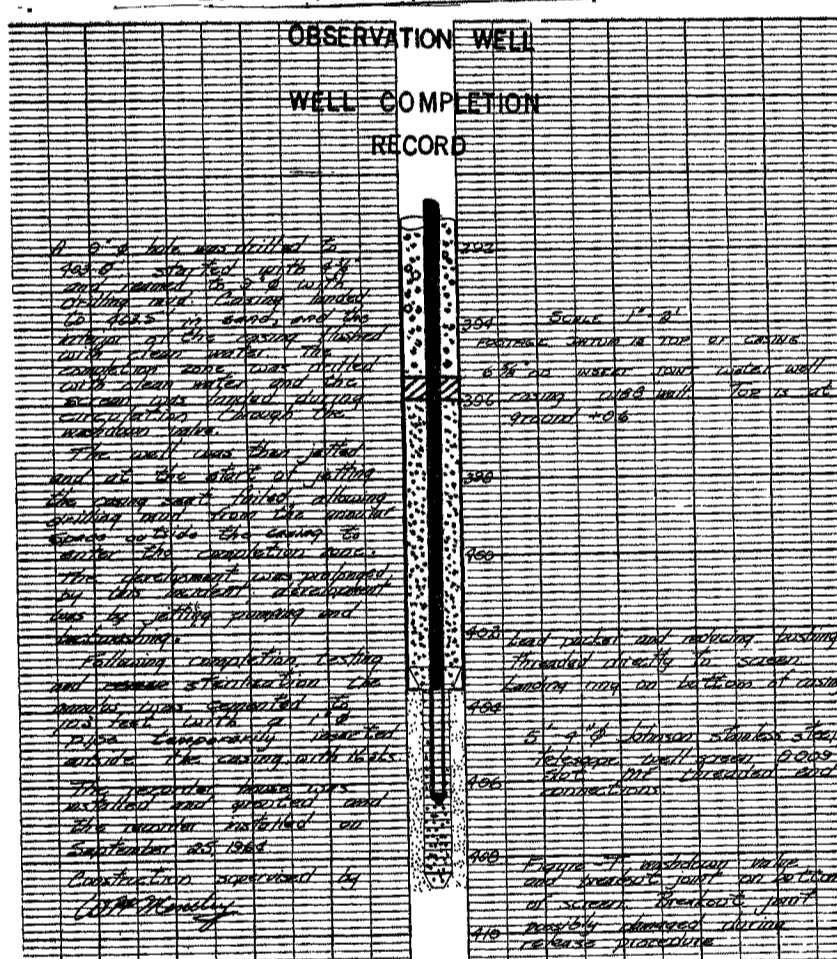 OBSERVATION WELL
WELL COMPLETION
RECORD
A 9" ø hole was drilled to
403.0 started with 4¾"
and reamed to 9" ø with
drilling mud. Casing landed
to 402.5' in sand, and the
interior of the casing flushed
with clean water. The
completion zone was drilled
with clean water and the
screen was landed during
circulation through the
washdown valve.
The well was then jetted
and at the start of jetting
the casing seat failed, allowing
drilling mud from the annular
space outside the casing to
enter the completion zone.
The development was prolonged
by this incident development
was by jetting pumping and
backwashing.
Following completion, testing
and sterilization the
annulus was cemented to
feet with a 1" ø
pipe temporarily inserted
outside the casing with
The recorder house was
installed and grouted and
the recorder installed on
September 25, 1964
Construction supervised by
392
394
396
398
400
402
404
406
408
410
SCALE 1" = 2'
FOOTAGE DATUM IS TOP OF CASING
6 5/8" OD INSERT JOINT water well
casing 0.188 wall. Top is at
ground +0.6
Lead packer and reducing bushing
threaded directly to screen.
Landing ring on bottom of casing
5' 4" ø Johnson stainless steel
telescope well screen 0.009
slot MF threaded end
connections
Figure washdown valve
and breakout joint on bottom
of screen. Breakout joint
possibly damaged during
release procedure